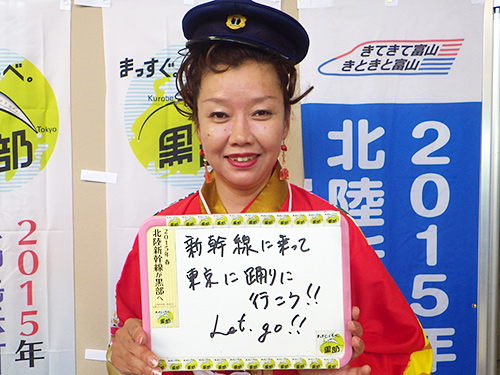 べ。
Tokyo
部
2015年
まっすぐ
Kurobe
黒部
きてきて富山
きときと富山
2015年
北陸
2015年 春
北陸新幹線が黒部へ
新幹線に乗って
東京に踊りに
行こう!!
Let. go!!
黒部